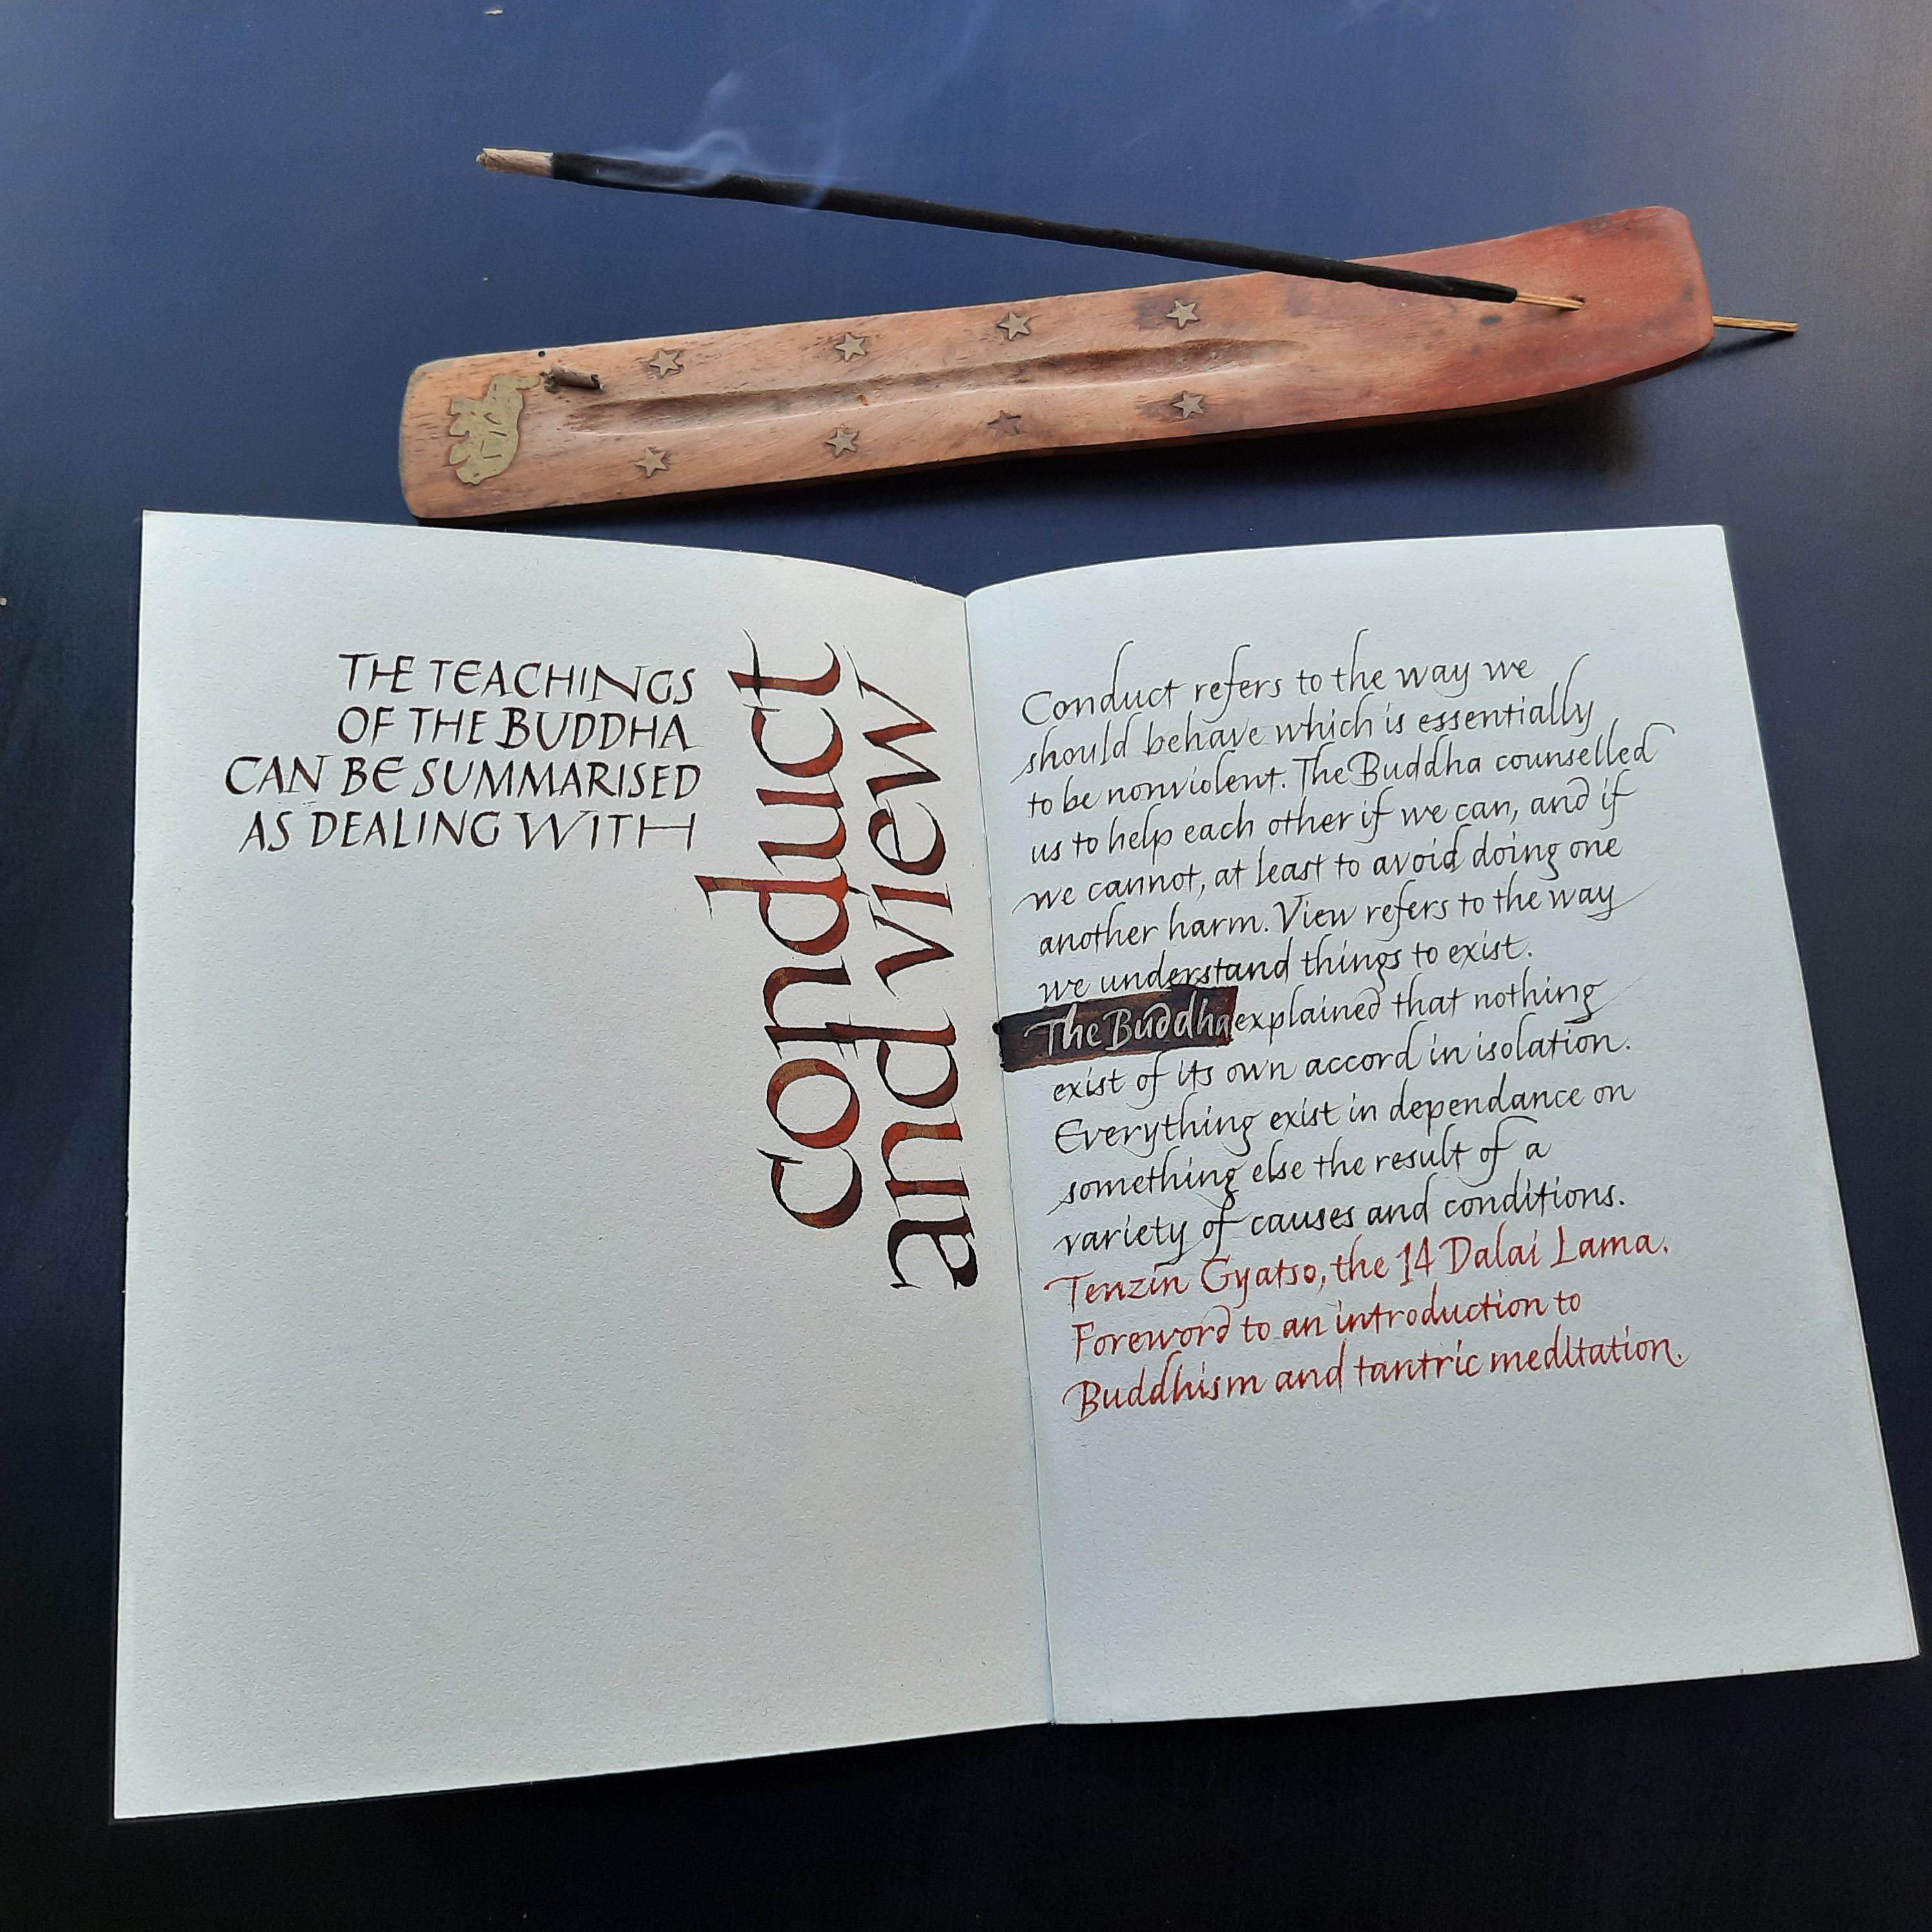 THE TEACHINGS
OF THE BUDDHA
CAN BE SUMMARISED
AS DEALING WITH
conduct
and view
Conduct refers to the way we
should behave which is essentially
to be nonviolent. The Buddha counselled
us to help each other if we can, and if
we cannot, at least to avoid doing one
another harm. View refers to the way
we understand things to exist.
The Buddha explained that nothing
exist of its own accord in isolation.
Everything exist in dependance on
something else the result of a
variety of causes and conditions.
Tenzin Gyatso, the 14 Dalai Lama.
Foreword to an introduction to
Buddhism and tantric meditation.